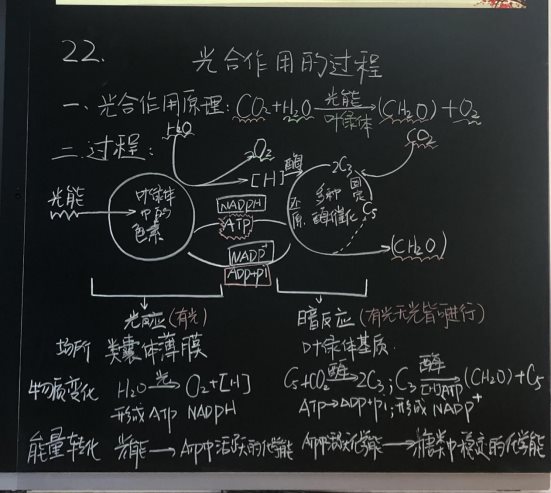 22.
光合作用的过程
一、光合作用原理:CO2+H2O 光能 叶绿体 (CH2O)+O2
二.过程:
H2O
O2
CO2
[H] 酶 2C3
光能
叶绿体中的色素
NADPH
ATP
NADP+
ADP+Pi
还原
多种酶催化
固定
C5
(CH2O)
光反应(有光)
暗反应(有光无光皆可进行)
场所 类囊体薄膜
叶绿体基质.
物质变化 H2O 光 O2+[H]
C5+CO2 酶 2C3;C3 酶 [H]ATP (CH2O)+C5
形成ATP NADPH
ATP→ADP+Pi;形成NADP+
能量转化 光能→ATP中活跃的化学能 ATP中活跃化学能→糖类中稳定的化学能